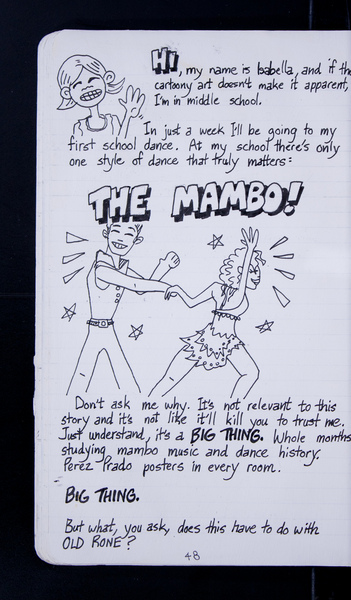 Hi, my name is Isabella, and if the
cartoony art doesn't make it apparent,
I'm in middle school.
In just a week I'll be going to my
first school dance. At my school there's only
one style of dance that truly matters:
THE MAMBO!
Don't ask me why. It's not relevant to this
story and it's not like it'll kill you to trust me.
Just understand, it's a BIG THING. Whole months
studying mambo music and dance history.
Perez Prado posters in every room.
BIG THING.
But what, you ask, does this have to do with
OLD RONE?
48